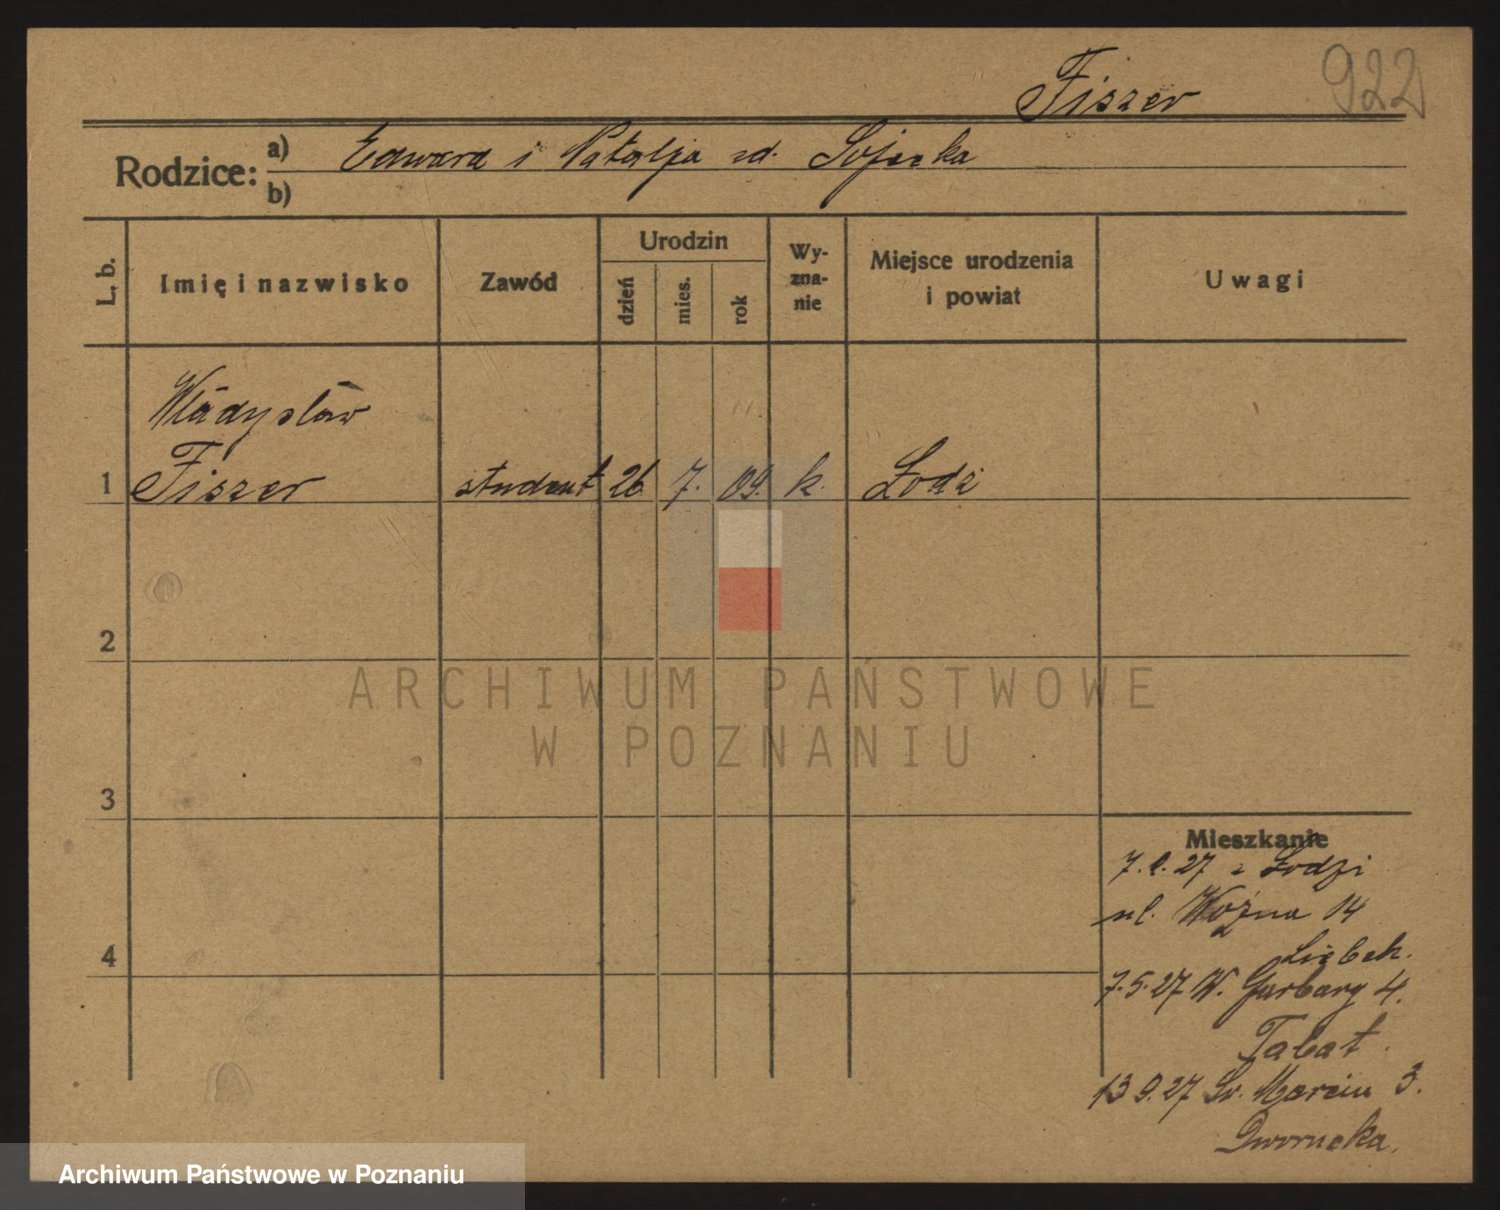 922
Fiszer
Rodzice: a) Edward i Natalja zd. Sojecka
b)
L. b. Imię i nazwisko Zawód Urodzin dzień mies. rok Wy-zna-nie Miejsce urodzenia i powiat Uwagi
Władysław
1 Fiszer student 26 7. 09. k. Łodź
2
ARCHIWUM PAŃSTWOWE
W POZNANIU
3
Mieszkanie
27 z Łodzi
ul. Woźna 14
4
7.5.27 W. Garbary 4.
Tabat
13 9.27 Św. Marcin 3.
Archiwum Państwowe w Poznaniu